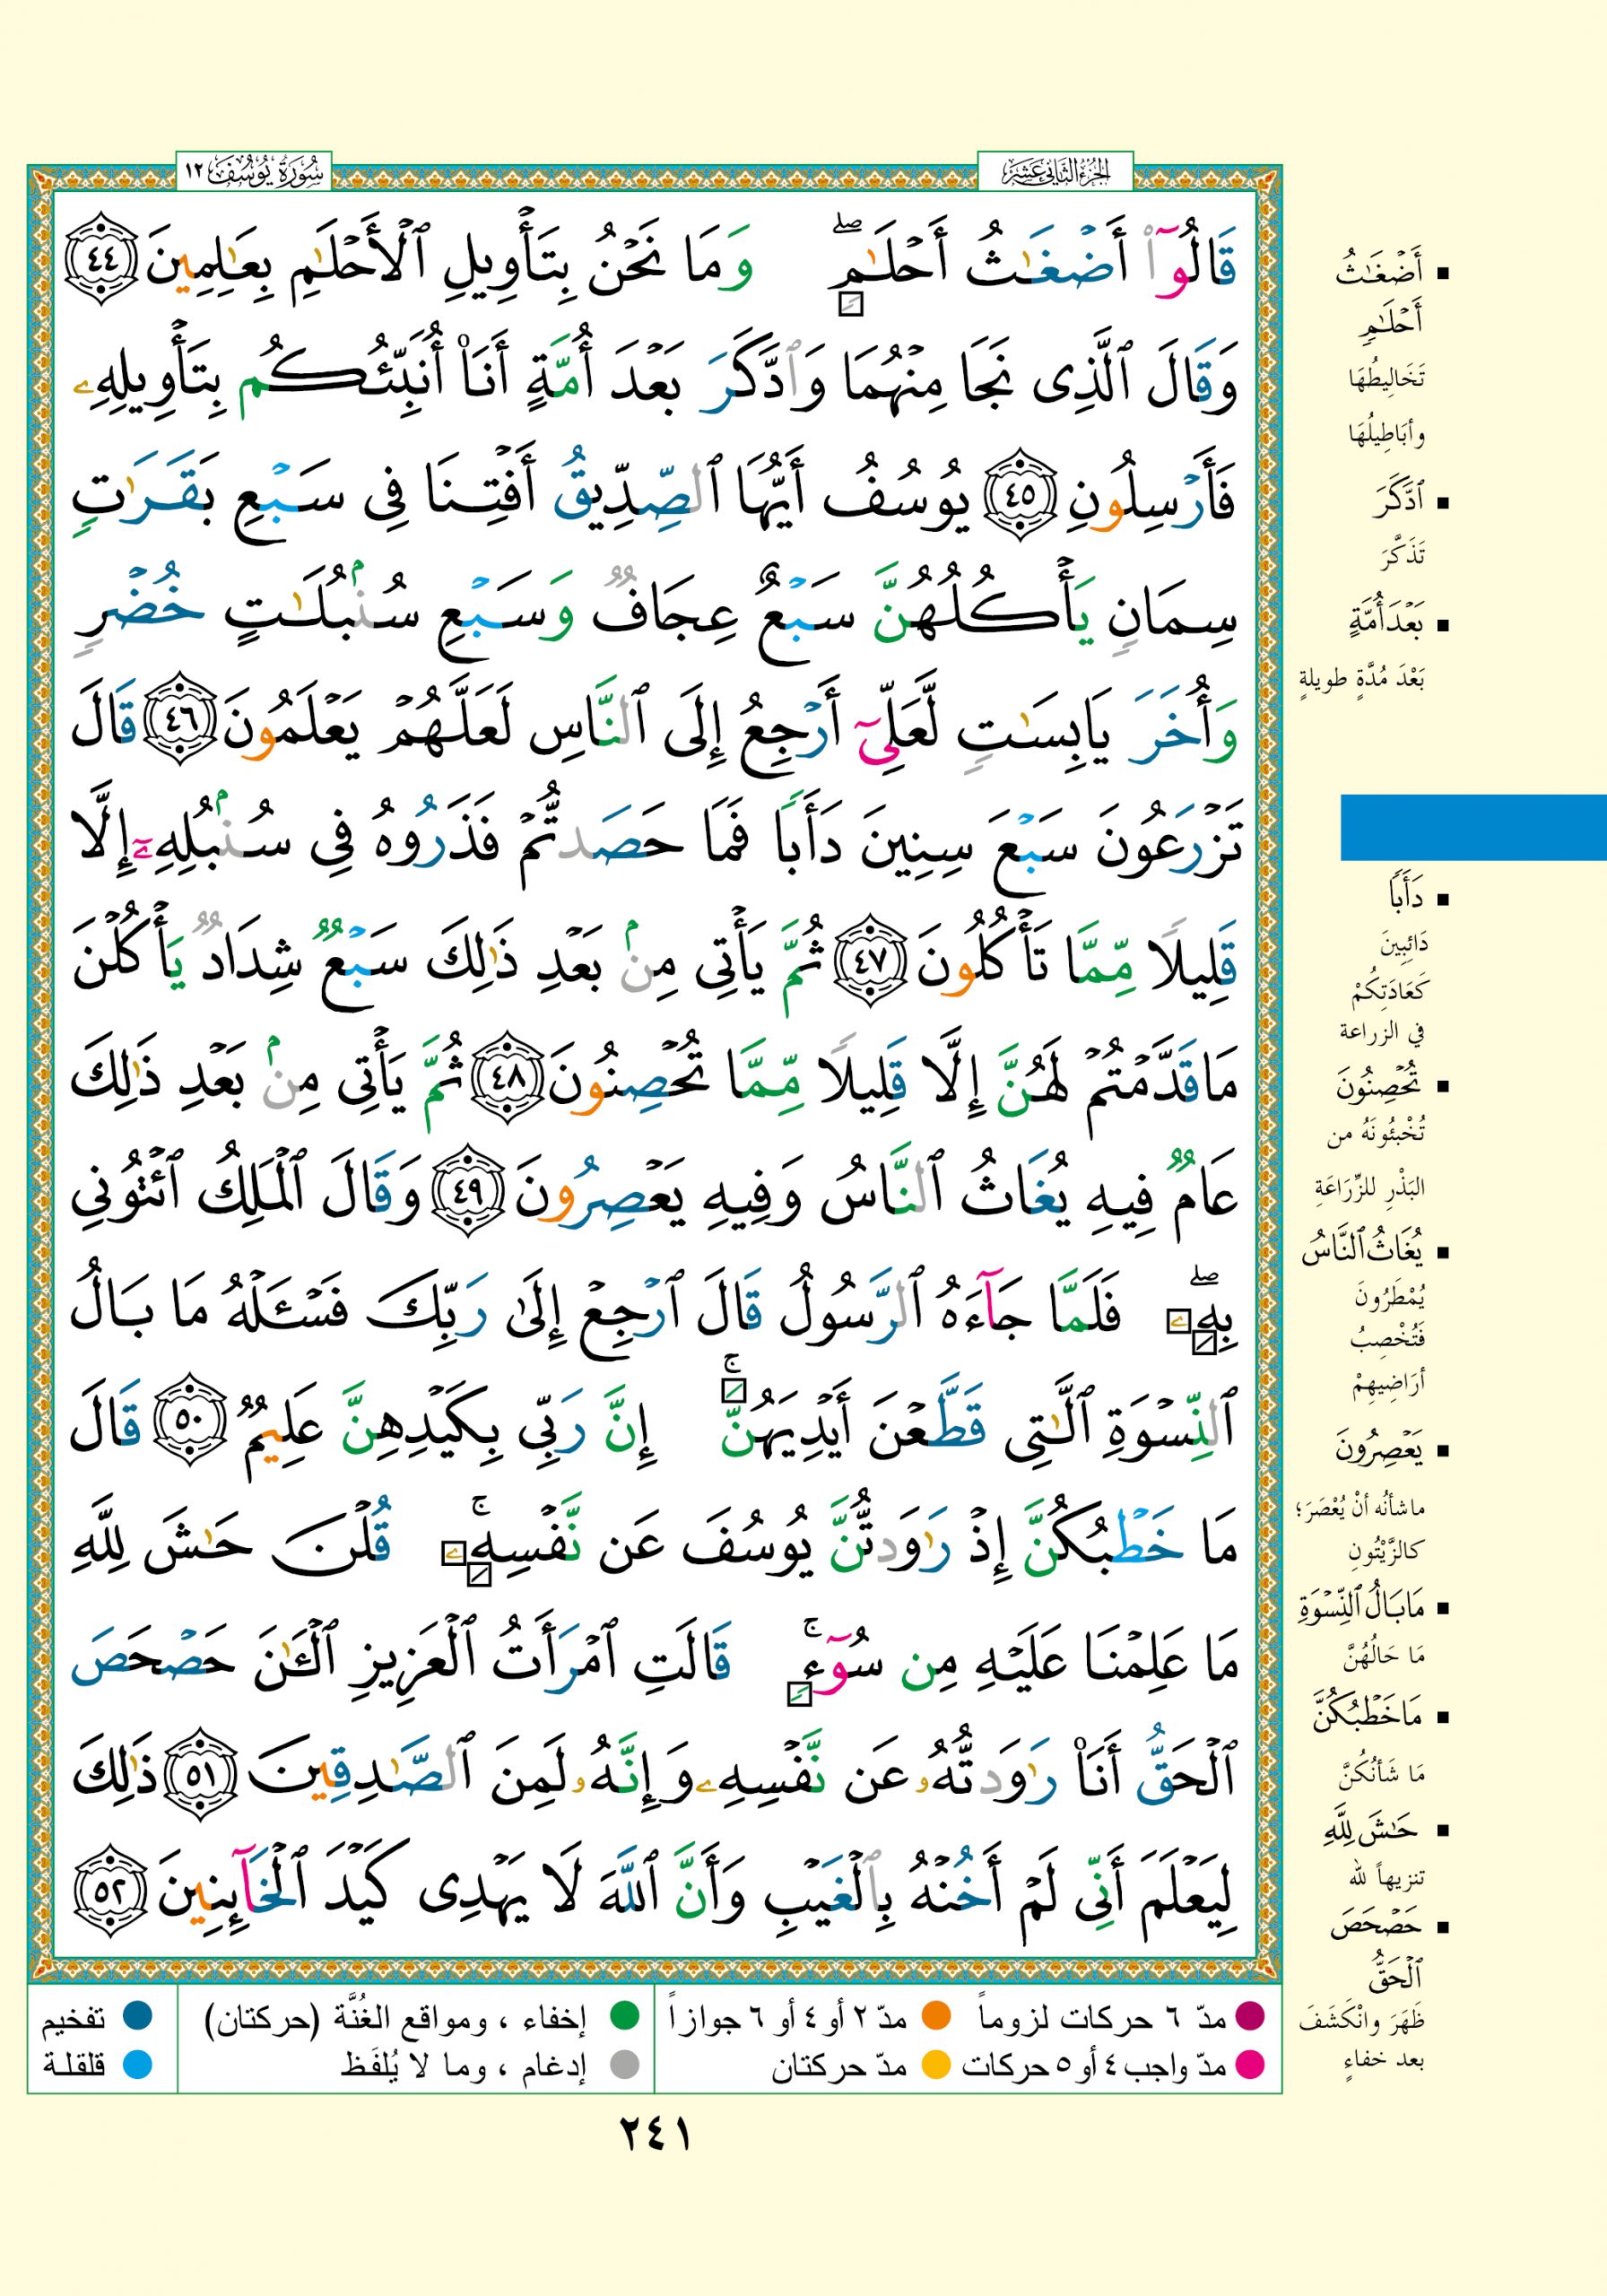 الجزء الثاني عشر
سورة يوسف ١٢
قَالُوٓا۟ أَضْغَٰثُ أَحْلَٰمٍۢ ۖ وَمَا نَحْنُ بِتَأْوِيلِ ٱلْأَحْلَٰمِ بِعَٰلِمِينَ ٤٤
وَقَالَ ٱلَّذِى نَجَا مِنْهُمَا وَٱدَّكَرَ بَعْدَ أُمَّةٍ أَنَا۠ أُنَبِّئُكُم بِتَأْوِيلِهِۦ
فَأَرْسِلُونِ ٤٥ يُوسُفُ أَيُّهَا ٱلصِّدِّيقُ أَفْتِنَا فِى سَبْعِ بَقَرَٰتٍۢ
سِمَانٍۢ يَأْكُلُهُنَّ سَبْعٌ عِجَافٌۭ وَسَبْعِ سُنۢبُلَٰتٍ خُضْرٍۢ
وَأُخَرَ يَابِسَٰتٍۢ لَّعَلِّىٓ أَرْجِعُ إِلَى ٱلنَّاسِ لَعَلَّهُمْ يَعْلَمُونَ ٤٦ قَالَ
تَزْرَعُونَ سَبْعَ سِنِينَ دَأَبًۭا فَمَا حَصَدتُّمْ فَذَرُوهُ فِى سُنۢبُلِهِۦٓ إِلَّا
قَلِيلًۭا مِّمَّا تَأْكُلُونَ ٤٧ ثُمَّ يَأْتِى مِنۢ بَعْدِ ذَٰلِكَ سَبْعٌۭ شِدَادٌۭ يَأْكُلْنَ
مَا قَدَّمْتُمْ لَهُنَّ إِلَّا قَلِيلًۭا مِّمَّا تُحْصِنُونَ ٤٨ ثُمَّ يَأْتِى مِنۢ بَعْدِ ذَٰلِكَ
عَامٌۭ فِيهِ يُغَاثُ ٱلنَّاسُ وَفِيهِ يَعْصِرُونَ ٤٩ وَقَالَ ٱلْمَلِكُ ٱئْتُونِى
بِهِۦ ۖ فَلَمَّا جَآءَهُ ٱلرَّسُولُ قَالَ ٱرْجِعْ إِلَىٰ رَبِّكَ فَسْـَٔلْهُ مَا بَالُ
ٱلنِّسْوَةِ ٱلَّٰتِى قَطَّعْنَ أَيْدِيَهُنَّ ۚ إِنَّ رَبِّى بِكَيْدِهِنَّ عَلِيمٌۭ ٥٠ قَالَ
مَا خَطْبُكُنَّ إِذْ رَٰوَدتُّنَّ يُوسُفَ عَن نَّفْسِهِۦ ۚ قُلْنَ حَٰشَ لِلَّهِ
مَا عَلِمْنَا عَلَيْهِ مِن سُوٓءٍۢ ۚ قَالَتِ ٱمْرَأَتُ ٱلْعَزِيزِ ٱلْـَٰٔنَ حَصْحَصَ
ٱلْحَقُّ أَنَا۠ رَٰوَدتُّهُۥ عَن نَّفْسِهِۦ وَإِنَّهُۥ لَمِنَ ٱلصَّٰدِقِينَ ٥١ ذَٰلِكَ
لِيَعْلَمَ أَنِّى لَمْ أَخُنْهُ بِٱلْغَيْبِ وَأَنَّ ٱللَّهَ لَا يَهْدِى كَيْدَ ٱلْخَآئِنِينَ ٥٢
▪ أَضْغَٰثُ
أَحْلَٰمٍ
تَخَالِيطُهَا
وأبَاطِيلُهَا
▪ ٱدَّكَرَ
تَذَكَّرَ
▪ بَعْدَ أُمَّةٍ
بَعْدَ مُدَّةٍ طويلةٍ
▪ دَأَبًا
دَائِبِينَ
كَعَادَتِكُمْ
في الزراعة
▪ تُحْصِنُونَ
تُخْبِئُونَهُ من
البَذْرِ للزِّرَاعَةِ
▪ يُغَاثُ ٱلنَّاسُ
يُمْطَرُونَ
فَتُخْصِبُ
أرَاضِيهِمْ
▪ يَعْصِرُونَ
ماشأنُه أنْ يُعْصَرَ؛
كالزَّيْتُونِ
▪ مَا بَالُ ٱلنِّسْوَةِ
مَا حَالُهُنَّ
▪ مَا خَطْبُكُنَّ
مَا شَأنُكُنَّ
▪ حَٰشَ لِلَّهِ
تنزيهاً لله
▪ حَصْحَصَ
ٱلْحَقُّ
ظَهَرَ وانْكَشَفَ
بعد خفاءٍ
مدّ ٦ حركات لزوماً مدّ ٢ أو ٤ أو ٦ جوازاً إخفاء ، ومواقع الغُنَّة (حركتان) تفخيم
مدّ واجب ٤ أو ٥ حركات مدّ حركتان إدغام ، وما لا يُلفَظ قلقلة
٢٤١